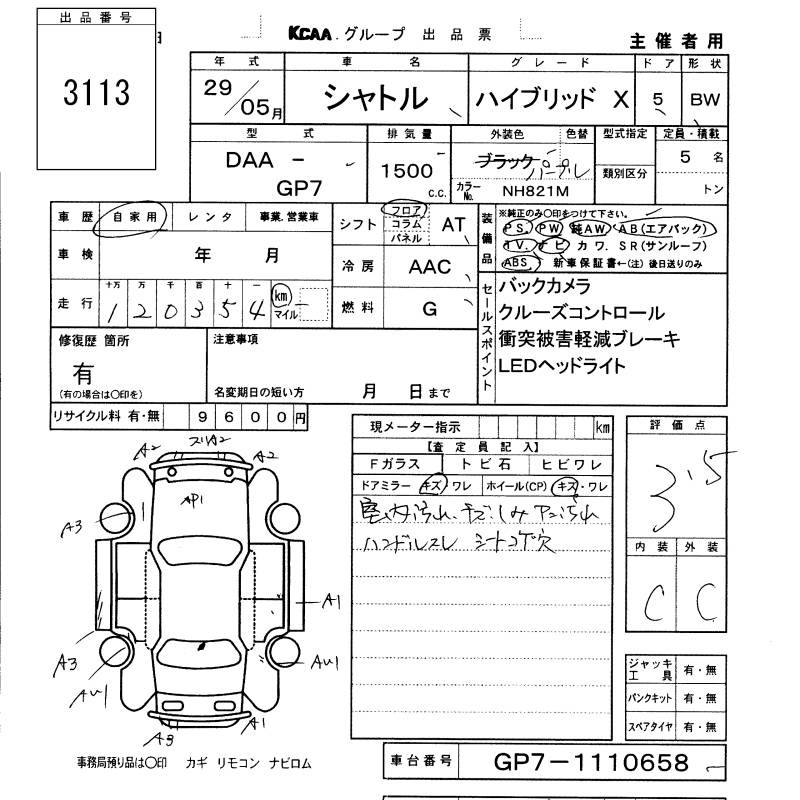 出品番号
3113
KCAA.グループ 出品票
主催者用
年式 車名 グレード ドア 形状
29/05月 シャトル ハイブリッド X 5 BW
型式 排気量 外装色 色替 型式指定 定員・積載
DAA - GP7
1500 c.c.
ブラック パープル
カラーNo. NH821M
類別区分
5 名
トン
車歴 自家用 レンタ 事業.営業車
車検 年 月
走行 十万 万 千 百 十 一
120354 km マイル
シフト フロア コラム パネル AT
冷房 AAC
燃料 G
装備品
※純正のみ〇印をつけて下さい。
PS. PW 純AW AB(エアバック)
TV. ナビ カワ. SR(サンルーフ)
ABS 新車保証書←(注)後日送りのみ
セールスポイント
バックカメラ
クルーズコントロール
衝突被害軽減ブレーキ
LEDヘッドライト
修復歴 箇所
有
(有の場合は〇印を)
注意事項
名変期日の短い方 月 日まで
リサイクル料 有・無 9600円
現メーター指示 km
【査定員記入】
Fガラス トビ石 ヒビワレ
ドアミラー キズ・ワレ ホイール(CP) キズ・ワレ
室内汚れ、キズ、しみ
ハンドルスレ シートコゲ穴
評価点
3.5
内装 外装
C C
A2 A2 A2
AP1
A3
A1
A3
AW1
AW1
A1
A3
ジャッキ工具 有・無
パンクキット 有・無
スペアタイヤ 有・無
事務局預り品は〇印 カギ リモコン ナビロム
車台番号 GP7-1110658